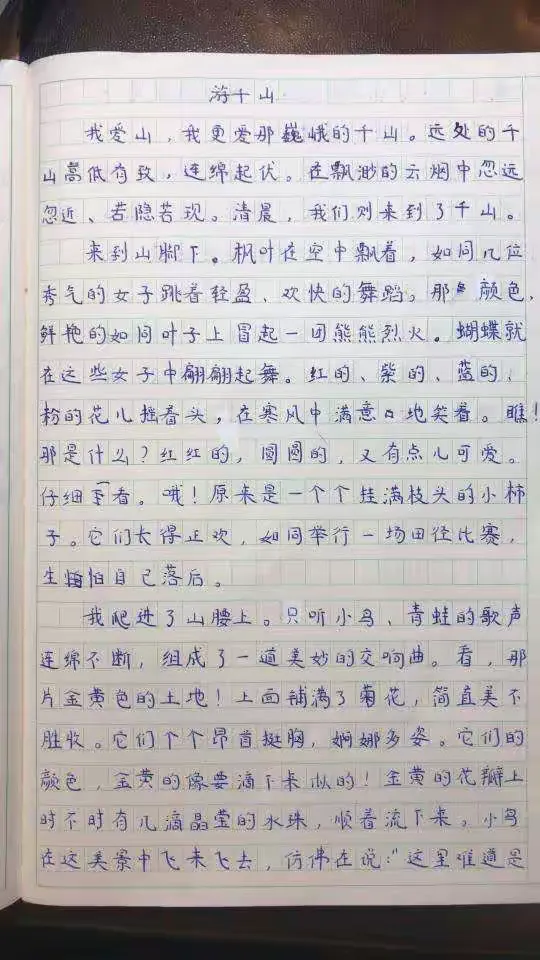 游千山
我爱山，我更爱那巍峨的千山。远处的千
山高低有致，连绵起伏。在飘渺的云烟中忽远
忽近、若隐若现。清晨，我们则来到了千山。
来到山脚下。枫叶在空中飘着，如同几位
秀气的女子跳着轻盈、欢快的舞蹈，那颜色，
鲜艳的如同叶子上冒起一团熊熊烈火。蝴蝶就
在这些女子中翩翩起舞。红的、紫的、蓝的、
粉的花儿摇着头，在寒风中满意地笑着。瞧！
那是什么？红红的，圆圆的，又有点儿可爱。
仔细一看。哦！原来是一个个挂满枝头的小柿
子。它们长得正欢，如同举行一场田径比赛，
生怕自己落后。
我爬进了山腰上。只听小鸟、青蛙的歌声
连绵不断，组成了一道美妙的交响曲。看，那
片金黄色的土地！上面铺满了菊花，简直美不
胜收。它们个个昂首挺胸，婀娜多姿。它们的
颜色，金黄的像要滴下来似的！金黄的花瓣上
时不时有几滴晶莹的水珠，顺着流下来。小鸟
在这美景中飞来飞去，仿佛在说：“这里难道是